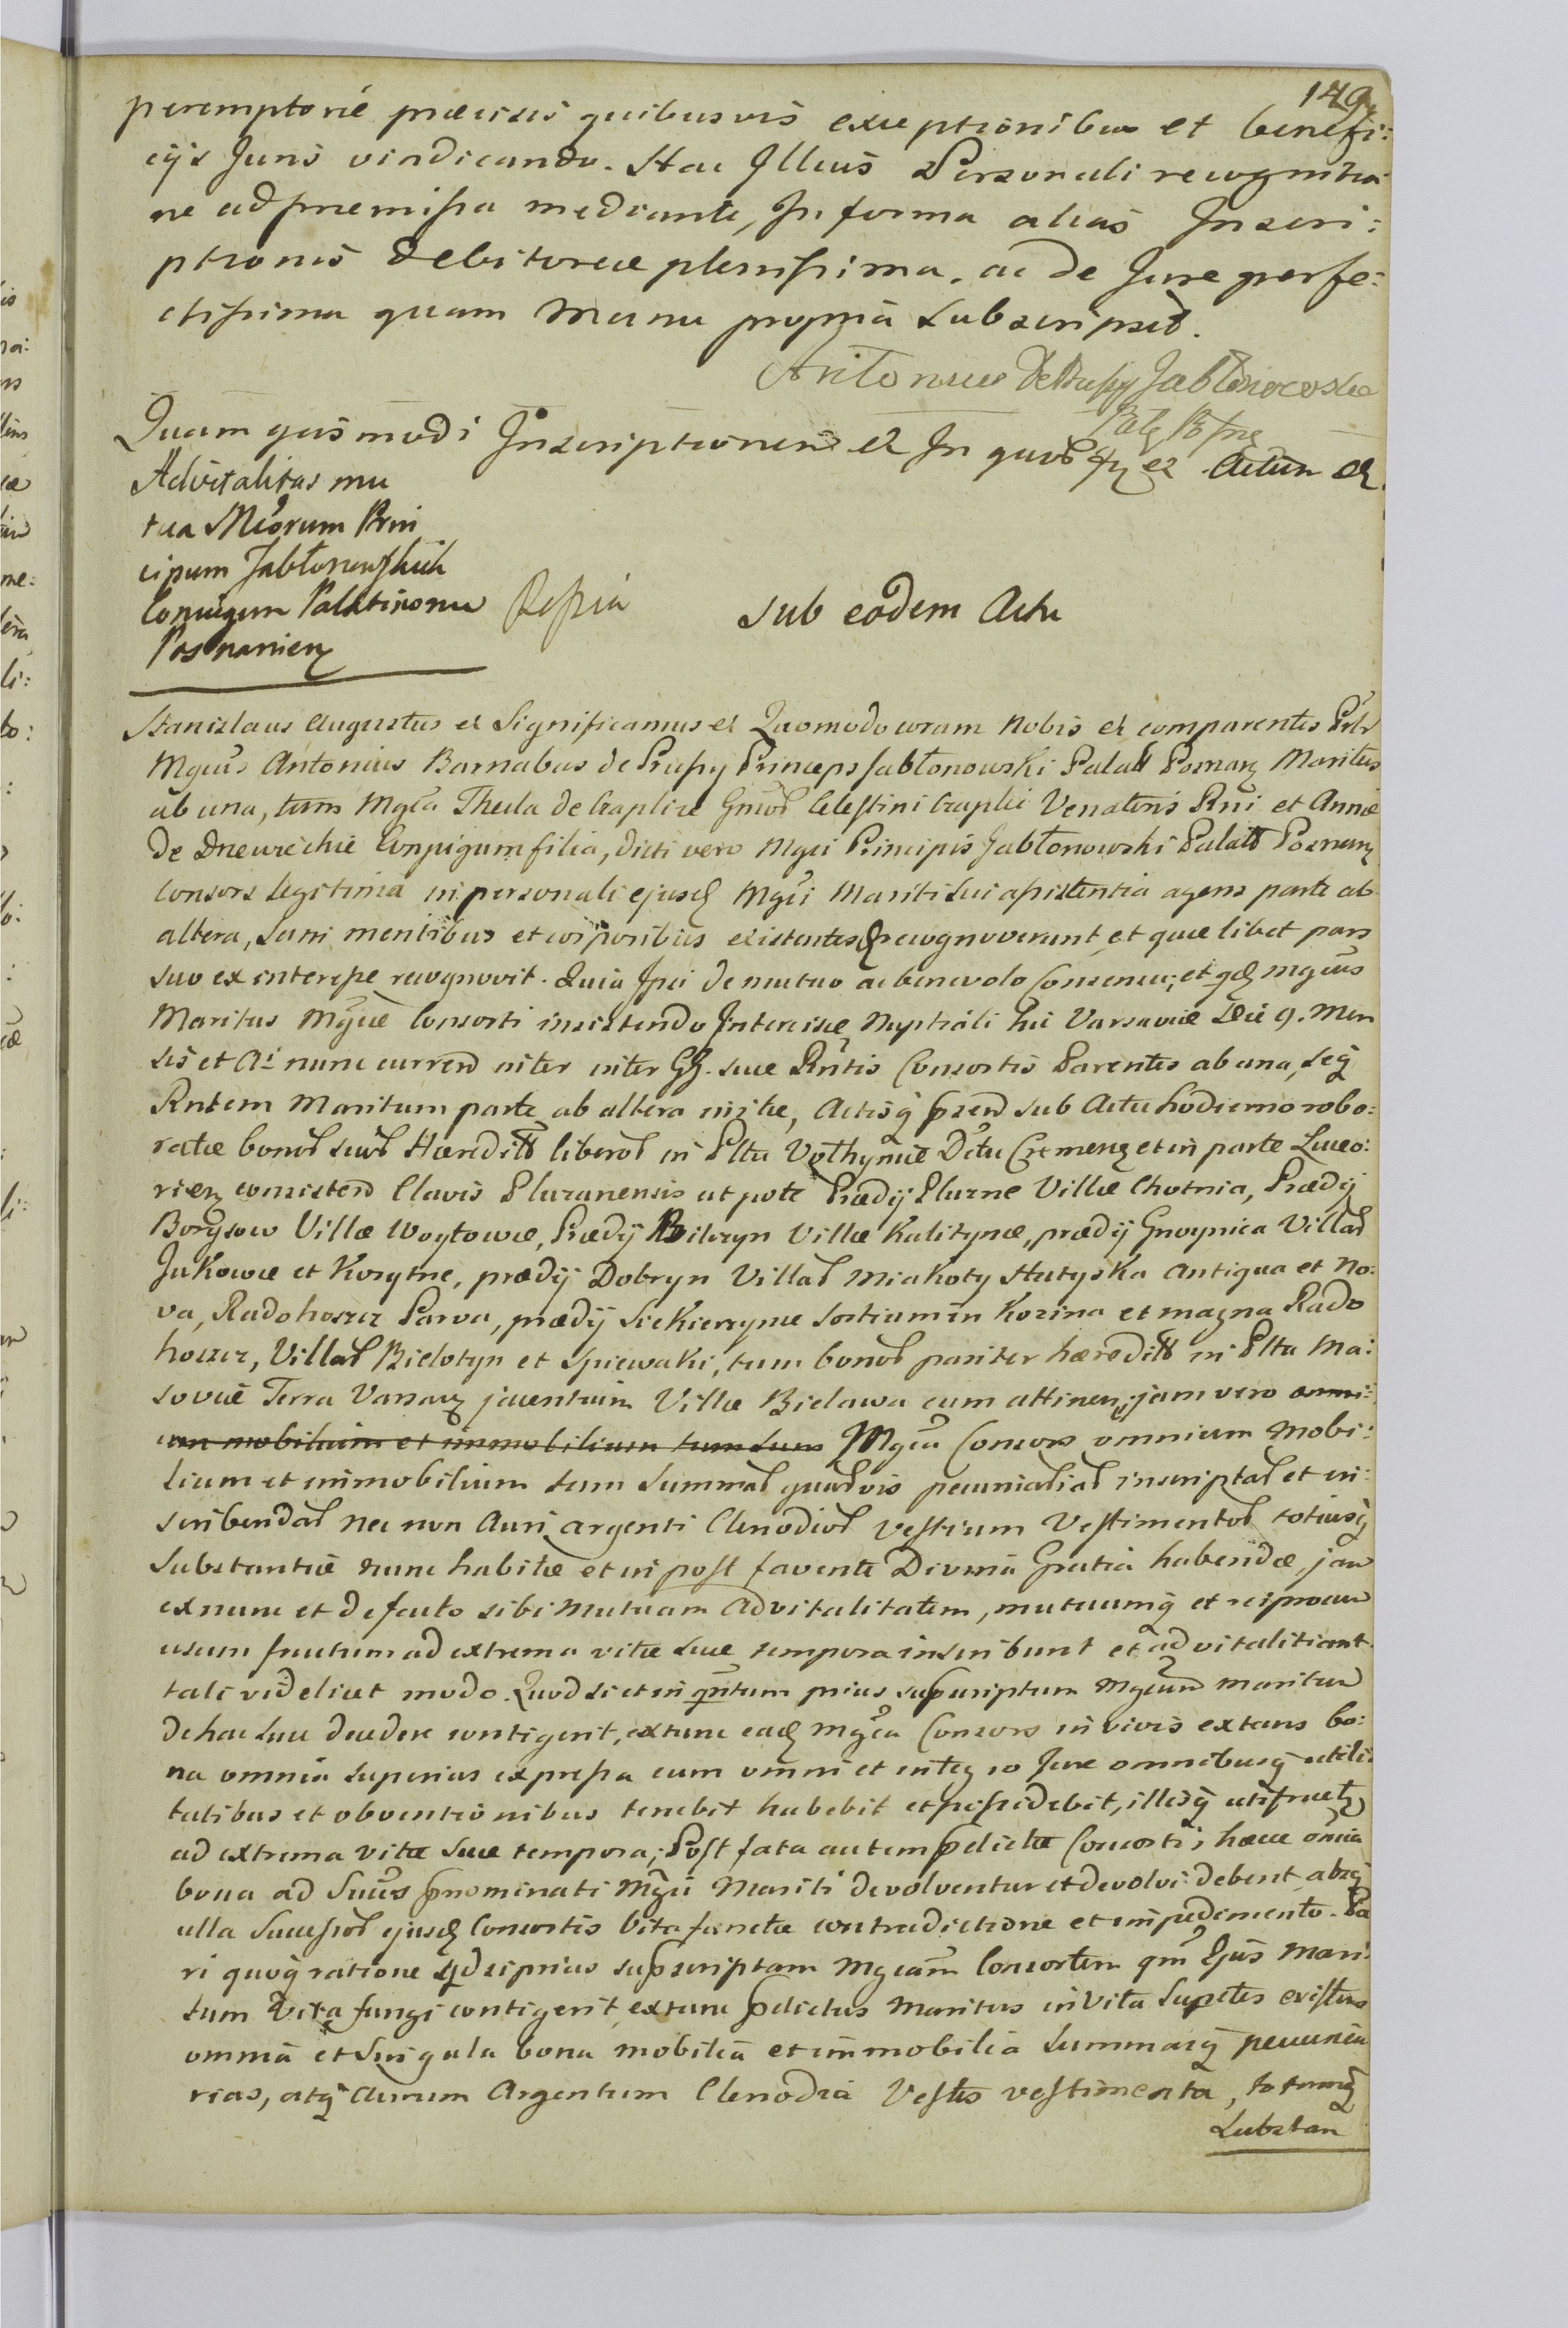 149
peremptorie præcisis quibusvis exceptionibus et benefi:
cijs Juris vindicando. Hac Illius Personali recognitio
ne ad præmissa mediante, In forma alias Inscri:
ptionis debitoreæ plenissima, ac de Jure perfe:
ctissima quam Manu propria subscripsit.
Antonius De Prussy Jabłonowski
Quam ejusmodi Inscriptionem et In quor et Actum et
Advitalitas mu
tua Mcorum Prin
cipum Jabłonowskich
Conjugum Palatinorum
Posnanien
Rossia sub eodem Actu
Stanislaus Augustus et Significamus et Quomodo coram Nobis et comparentes
Mgcus Antonius Barnabas de Prussy Princeps Jabłonowski Palat Posnan Maritus
ab una, tum Mgca Thecla de Czaplice Celestini Czaplic Venatoris Rni et Annæ
de Conjugum filia, dicti vero Mgci Principis Jabłonowski Palat Posnan
Consors legitima in personali ejusd Mgci Mariti sui assistentia agens parte ab
altera, sani mentibus et corporibus existentes recognoverunt et quælibet pars
suo ex interesse recognovit. Quia Ipsi de mutuo ac benevolo Consensu, et qd Mgcus
Maritus Mgcæ Consorti insistendo Intercisæ Nuptiali hic Varsaviæ Die 9. Men
sis et Ai nunc curren inter inter GG. suæ Rntis Consortis Parentes ab una, seq
Rntem Maritum parte ab altera initæ, Actisq præsen sub Actu hodierno robo:
ratæ bonor suor Hæredit liberor in Pltu Vołhyniæ Dctu Cremenz et in parte Luceo:
rien consisten Clavis Pluznensis utpote Prædij Pluzne Villæ Chotnia, Prædij
Borysow Villæ Woytowce, Prædij Bilczyn Villæ Kalitynce, prædij Gnoynica Villar
Jukowce et Korytne, prædij Dobryn Villar Miakoty Hutyska Antiqua et No:
va, Radohoszcz Parva, prædij Siekierzynce Sortium in Kozina et magna Rado
hoszcz, Villar Bielotyn et Spiewaki, tum bonor pariter hæredit in Pltu Ma:
soviæ Terra Varsav jacentium Villæ Bielawa cum attinen, jam vero omni:
um mobilium et immobilium tum sum Mgca Consors omnium Mobi:
lium et immobilium tum Summar quarvis pecuniariar inscriptar et in:
scribendar nec non Auri argenti Clenodior Vestium Vestimentor totiusq
Substantiæ nunc habitæ et in post favente Divina Gratia habendæ, jam
ex nunc et de facto sibi Mutuam Advitalitatem, mutuumq et reciprocum
usum fructum ad extrema vitæ suæ tempora inscribunt et advitalitiant
tali videlicet modo. Quod si et in qntum prius supscriptum Mgcum maritum
de hac luce decedere contigerit, ex tunc ead Mgca Consors in vivis extans bo:
na omnia superius expressa cum omni et integro Jure omnibusq utili:
tatibus et obventionibus tenebit habebit et possidebit, illisq utifruet
ad extrema vitæ suæ tempora; Post fata autem pdictæ Consortis hæcce omnia
bona ad Succes pnominati Mgci Mariti devolventur et devolvi debent absq
ulla Successor ejusd Consortis vita functæ contradictione et impedimento. Pa
ri quoq ratione qd si prius supscriptam Mgcam Consortem qm Ejus Mari
tum Vita fungi contigerit, ex tunc pdictus Maritus in Vita Supstes existens
omnia et Singula bona mobilia et immobilia Summasq pecunia
rias, atq Aurum Argentum Clenodia Vestes vestimenta, totamq
Substan